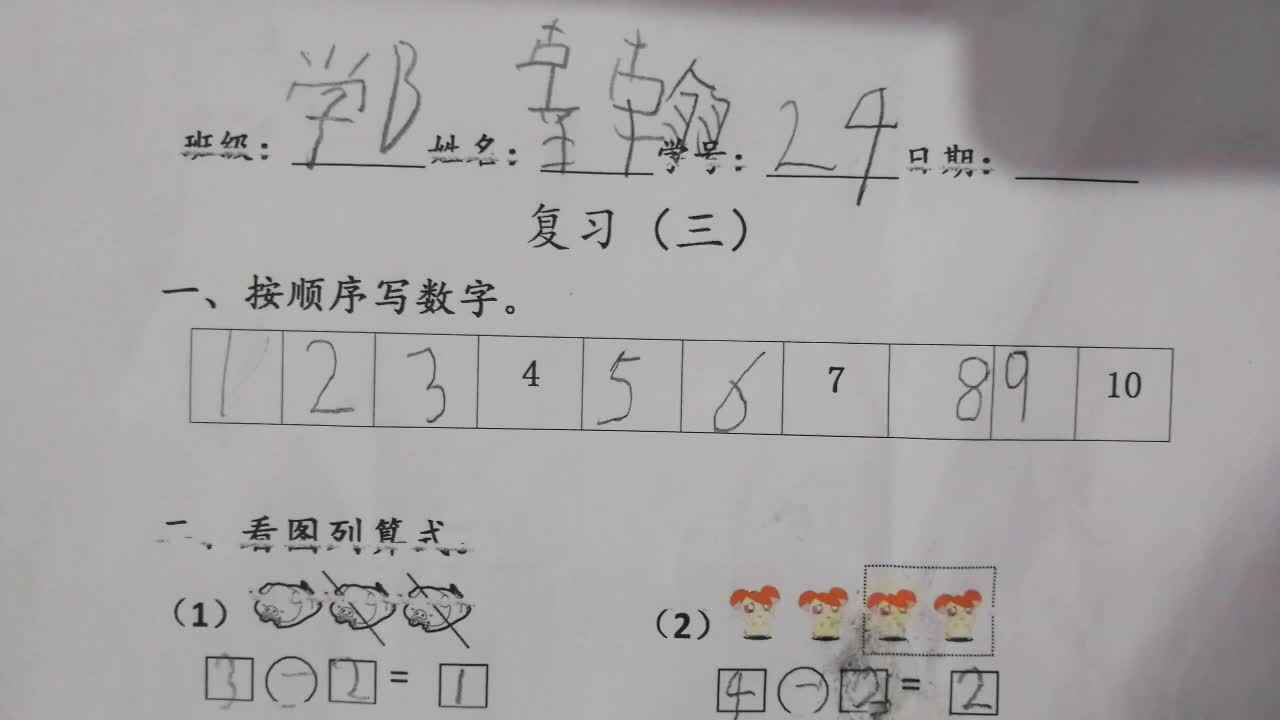 班级：学B 姓名： 学号：24 日期：
复习（三）
一、按顺序写数字。
1 2 3 4 5 6 7 8 9 10
二、看图列算式。
（1） （2）
3－2＝1 4－2＝2